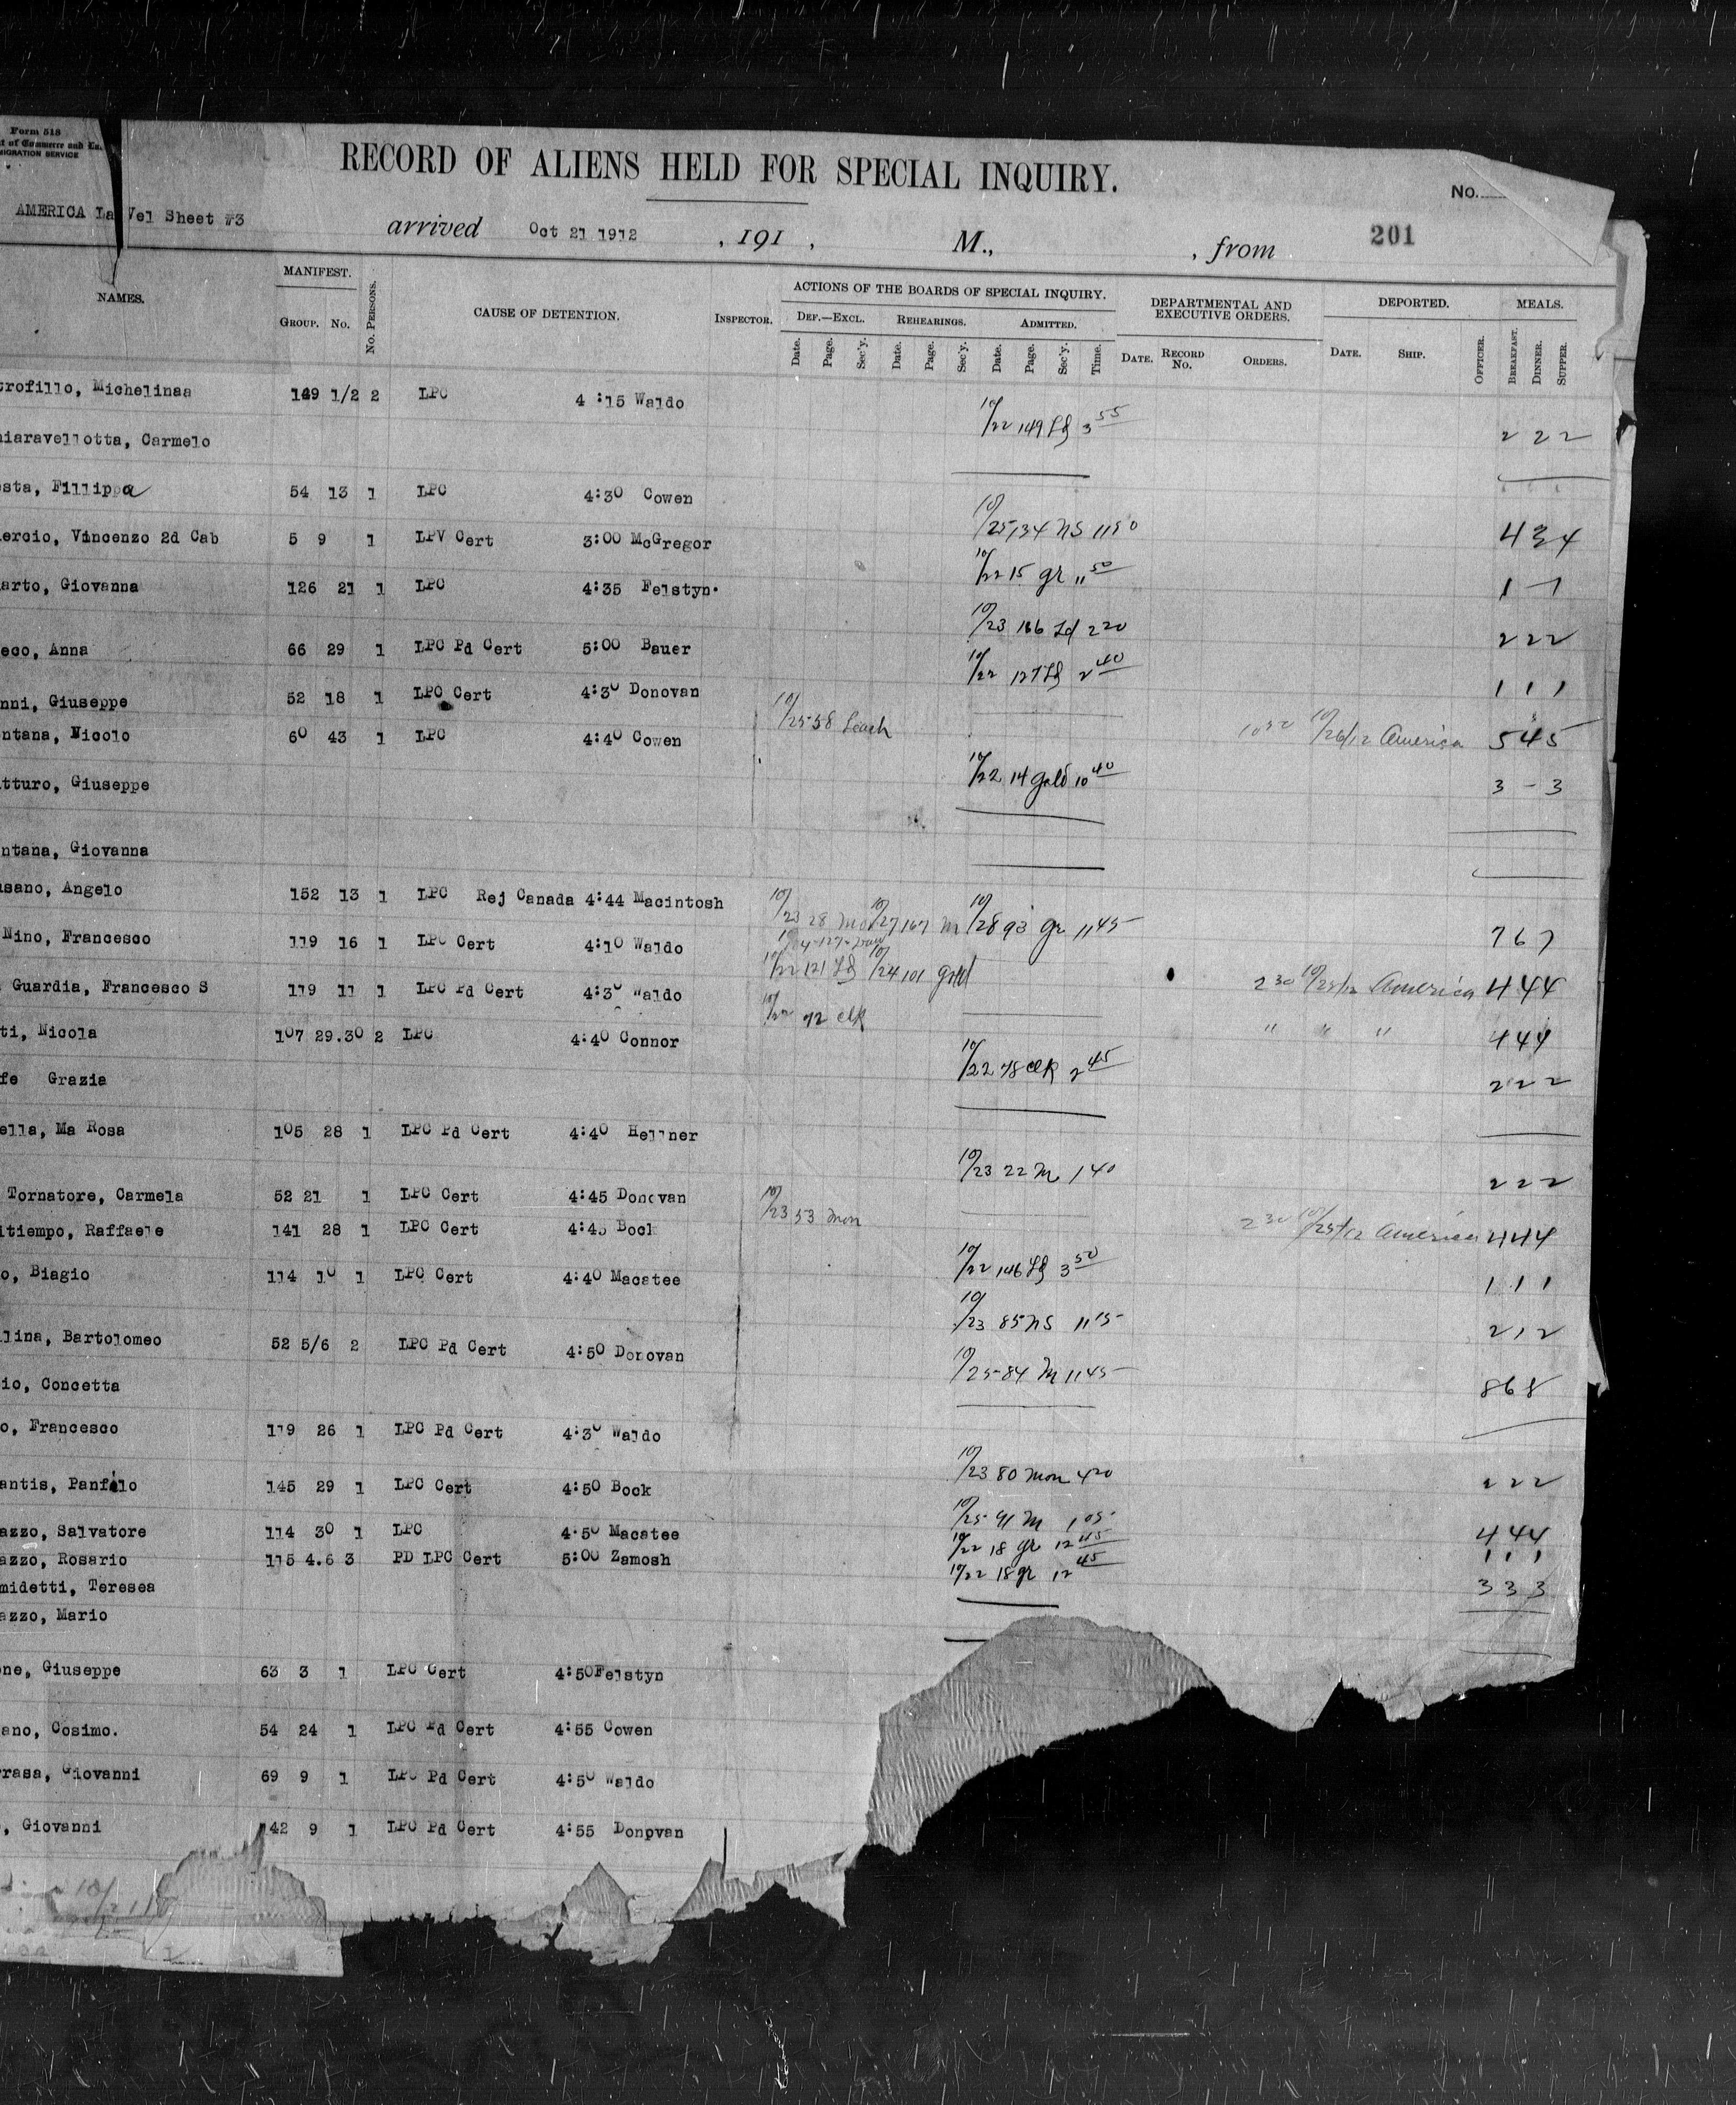 Form 518
t of Commerce and La
MIGRATION SERVICE
RECORD OF ALIENS HELD FOR SPECIAL INQUIRY.
No.
AMERICA La Vel Sheet #3
arrived Oct 21 1912 , 191 , M., , from 201
NAMES. MANIFEST. GROUP. No. No. PERSONS. CAUSE OF DETENTION. INSPECTOR. ACTIONS OF THE BOARDS OF SPECIAL INQUIRY. DEF.—EXCL. REHEARINGS. ADMITTED. DEPARTMENTAL AND EXECUTIVE ORDERS. DEPORTED. MEALS.
Date. Page. Sec'y. Date. Page. Sec'y. Date. Page. Sec'y. Time. DATE. RECORD No. ORDERS. DATE. SHIP. OFFICER. BREAKFAST. DINNER. SUPPER.
trofillo, Michelinaa 149 1/2 2 LPC 4:15 Waldo
10/22 149 3 55
iaravellotta, Carmelo 2 2 2
sta, Fillippa 54 13 1 LPC 4:30 Cowen
10/25 134 NS 11 50
ercio, Vincenzo 2d Cab 5 9 1 LPV Cert 3:00 McGregor 4 3 4
10/22 15 gr 11 50
arto, Giovanna 126 21 1 LPC 4:35 Felstyn. 1 - 1
10/23 166 Ld 2 20
eco, Anna 66 29 1 LPC Pd Cert 5:00 Bauer 2 2 2
10/22 127 2 40
nni, Giuseppe 52 18 1 LPC Cert 4:30 Donovan 1 1 1
10/25 58 Leach
ntana, Nicolo 60 43 1 LPC 4:40 Cowen 10/26/12 America 5 4 5
10/22 14 Gold 10 40
tturo, Giuseppe 3 - 3
ntana, Giovanna
sano, Angelo 152 13 1 LPC Rej Canada 4:44 Macintosh
10/23 28 10/27 167 M 10/28 93 gr 11 45
Nino, Francesco 119 16 1 LPC Cert 4:10 Waldo 7 6 7
10/22 121 10/24 101 Gold
Guardia, Francesco S 119 11 1 LPC Pd Cert 4:30 Waldo 2 30 10/25/12 America 4 4 4
10/22 72 clk
ti, Nicola 107 29.30 2 LPC 4:40 Connor " " " 4 4 4
10/22 78 clk 2 45
fe Grazia 2 2 2
ella, Ma Rosa 105 28 1 LPC Pd Cert 4:40 Hellner
10/23 22 M 1 40
2 2 2
Tornatore, Carmela 52 21 1 LPC Cert 4:45 Donovan
10/23 53 Mon
itiempo, Raffaele 141 28 1 LPC Cert 4:45 Bock 2 30 10/25/12 America 4 4 4
10/22 146 3 50
o, Biagio 114 10 1 LPC Cert 4:40 Macatee 1 1 1
10/23 85 NS 11 15
lina, Bartolomeo 52 5/6 2 LPC Pd Cert 4:50 Donovan 2 1 2
10/25 84 M 11 45
io, Concetta 8 6 8
o, Francesco 119 26 1 LPC Pd Cert 4:30 Waldo
10/23 80 Mon 4 20
antis, Panfilo 145 29 1 LPC Cert 4:50 Bock 2 2 2
10/25 91 M 1 05
azzo, Salvatore 114 30 1 LPC 4:50 Macatee 4 4 4
10/22 18 gr 12 45
azzo, Rosario 115 4.6 3 PD LPC Cert 5:00 Zamosh 1 1 1
10/22 18 gr 12 45
midetti, Teresea 3 3 3
azzo, Mario
ne, Giuseppe 63 3 1 LPC Cert 4:50 Felstyn
ano, Cosimo. 54 24 1 LPC Pd Cert 4:55 Cowen
rrasa, Giovanni 69 9 1 LPC Pd Cert 4:50 Waldo
, Giovanni 42 9 1 LPC Pd Cert 4:55 Donpvan